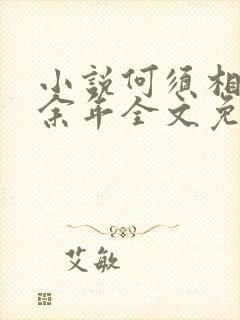 小说何须相
余年全文免
艾敏